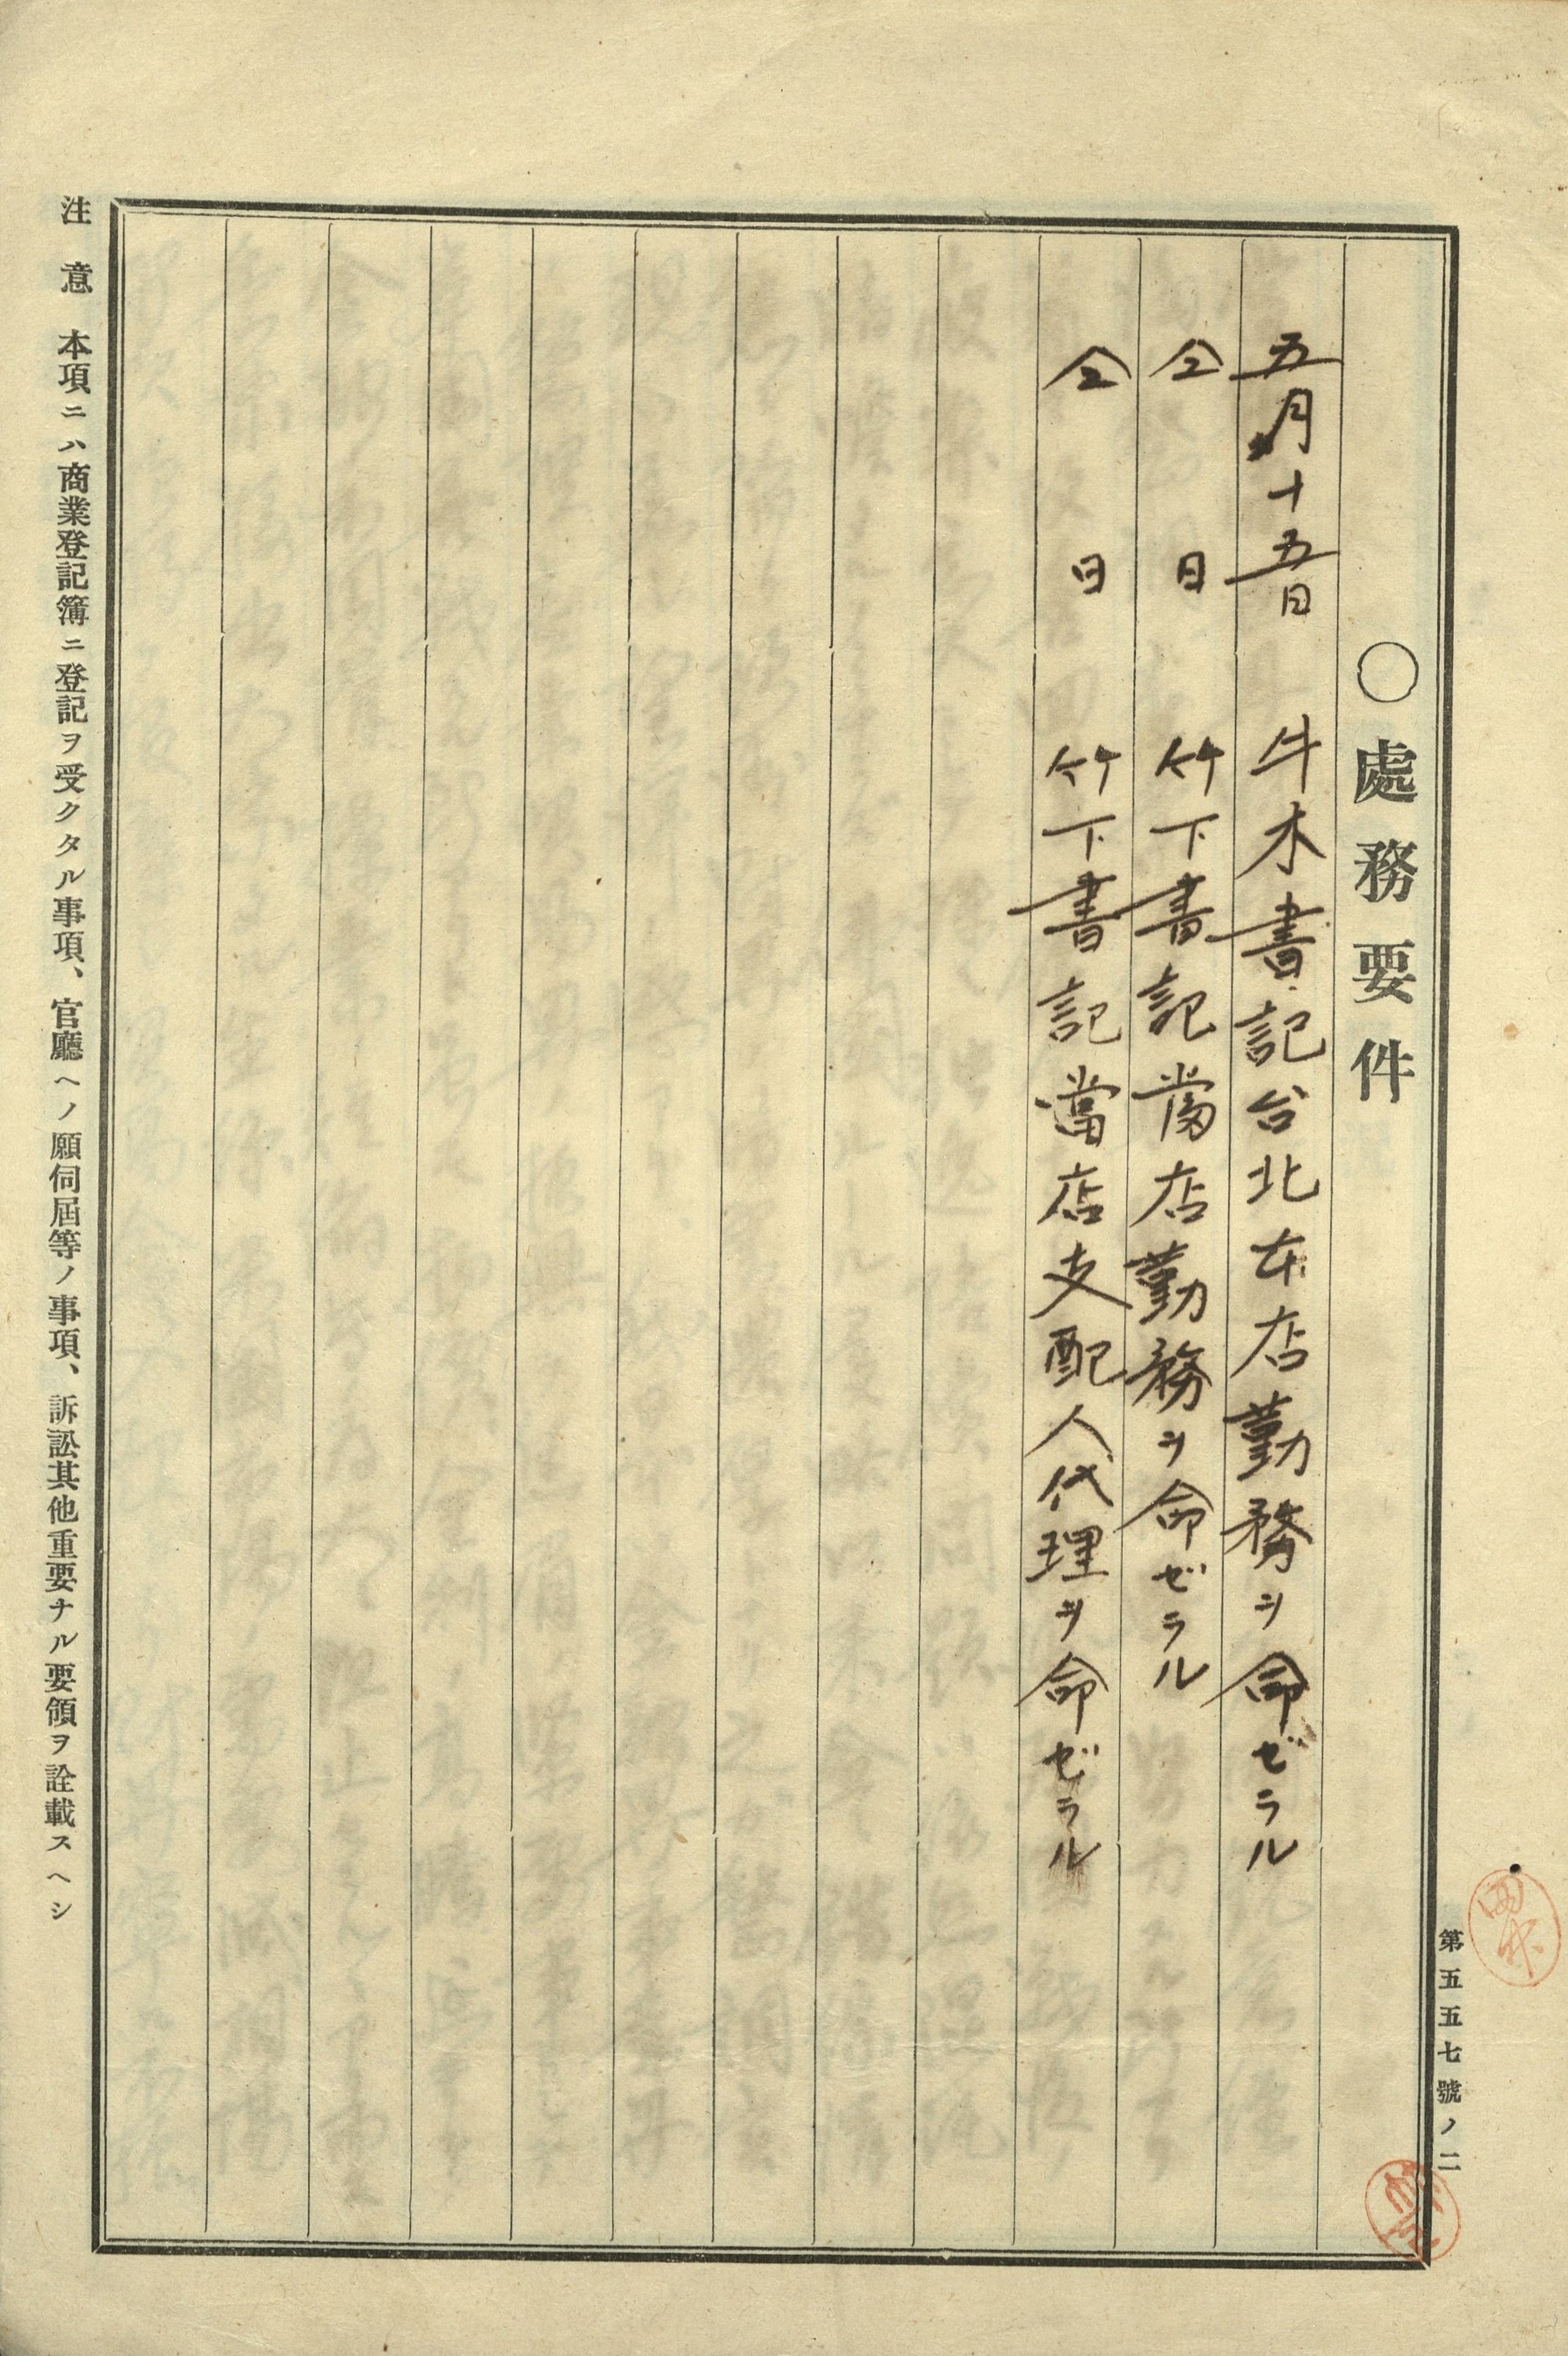 〇處務要件
五月十五日 牛木書記台北本店勤務ヲ命ゼラル
仝日 竹下書記當店勤務ヲ命ゼラル
仝日 竹下書記當店支配人代理ヲ命ゼラル
注意 本項ニハ商業登記簿ニ登記ヲ受クタル事項、官廳ヘノ願伺屆等ノ事項、訴訟其他重要ナル要領ヲ詮載スヘシ
第五五七號ノ二